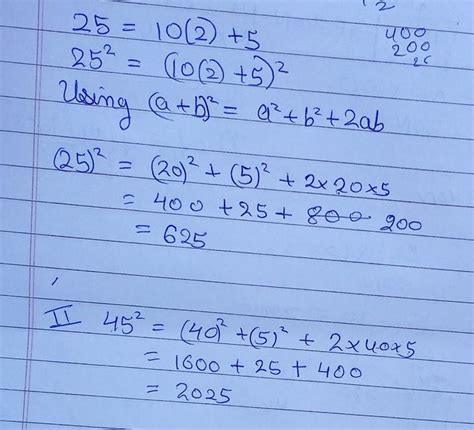 12
25 = 10(2) + 5
400
25² = (10(2) + 5)²
200
25
Using (a+b)² = a² + b² + 2ab
(25)² = (20)² + (5)² + 2×20×5
= 400 + 25 + 800 200
= 625
II 45² = (40)² + (5)² + 2×40×5
= 1600 + 25 + 400
= 2025